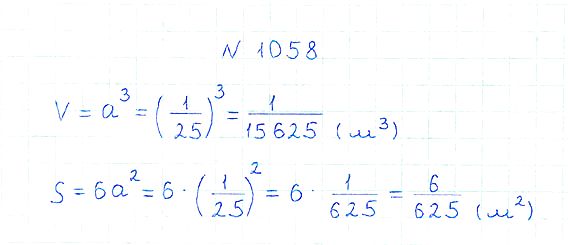 N 1058
V = a³ = (1/25)³ = 1/15625 (м³)
S = 6a² = 6 · (1/25)² = 6 · 1/625 = 6/625 (м²)